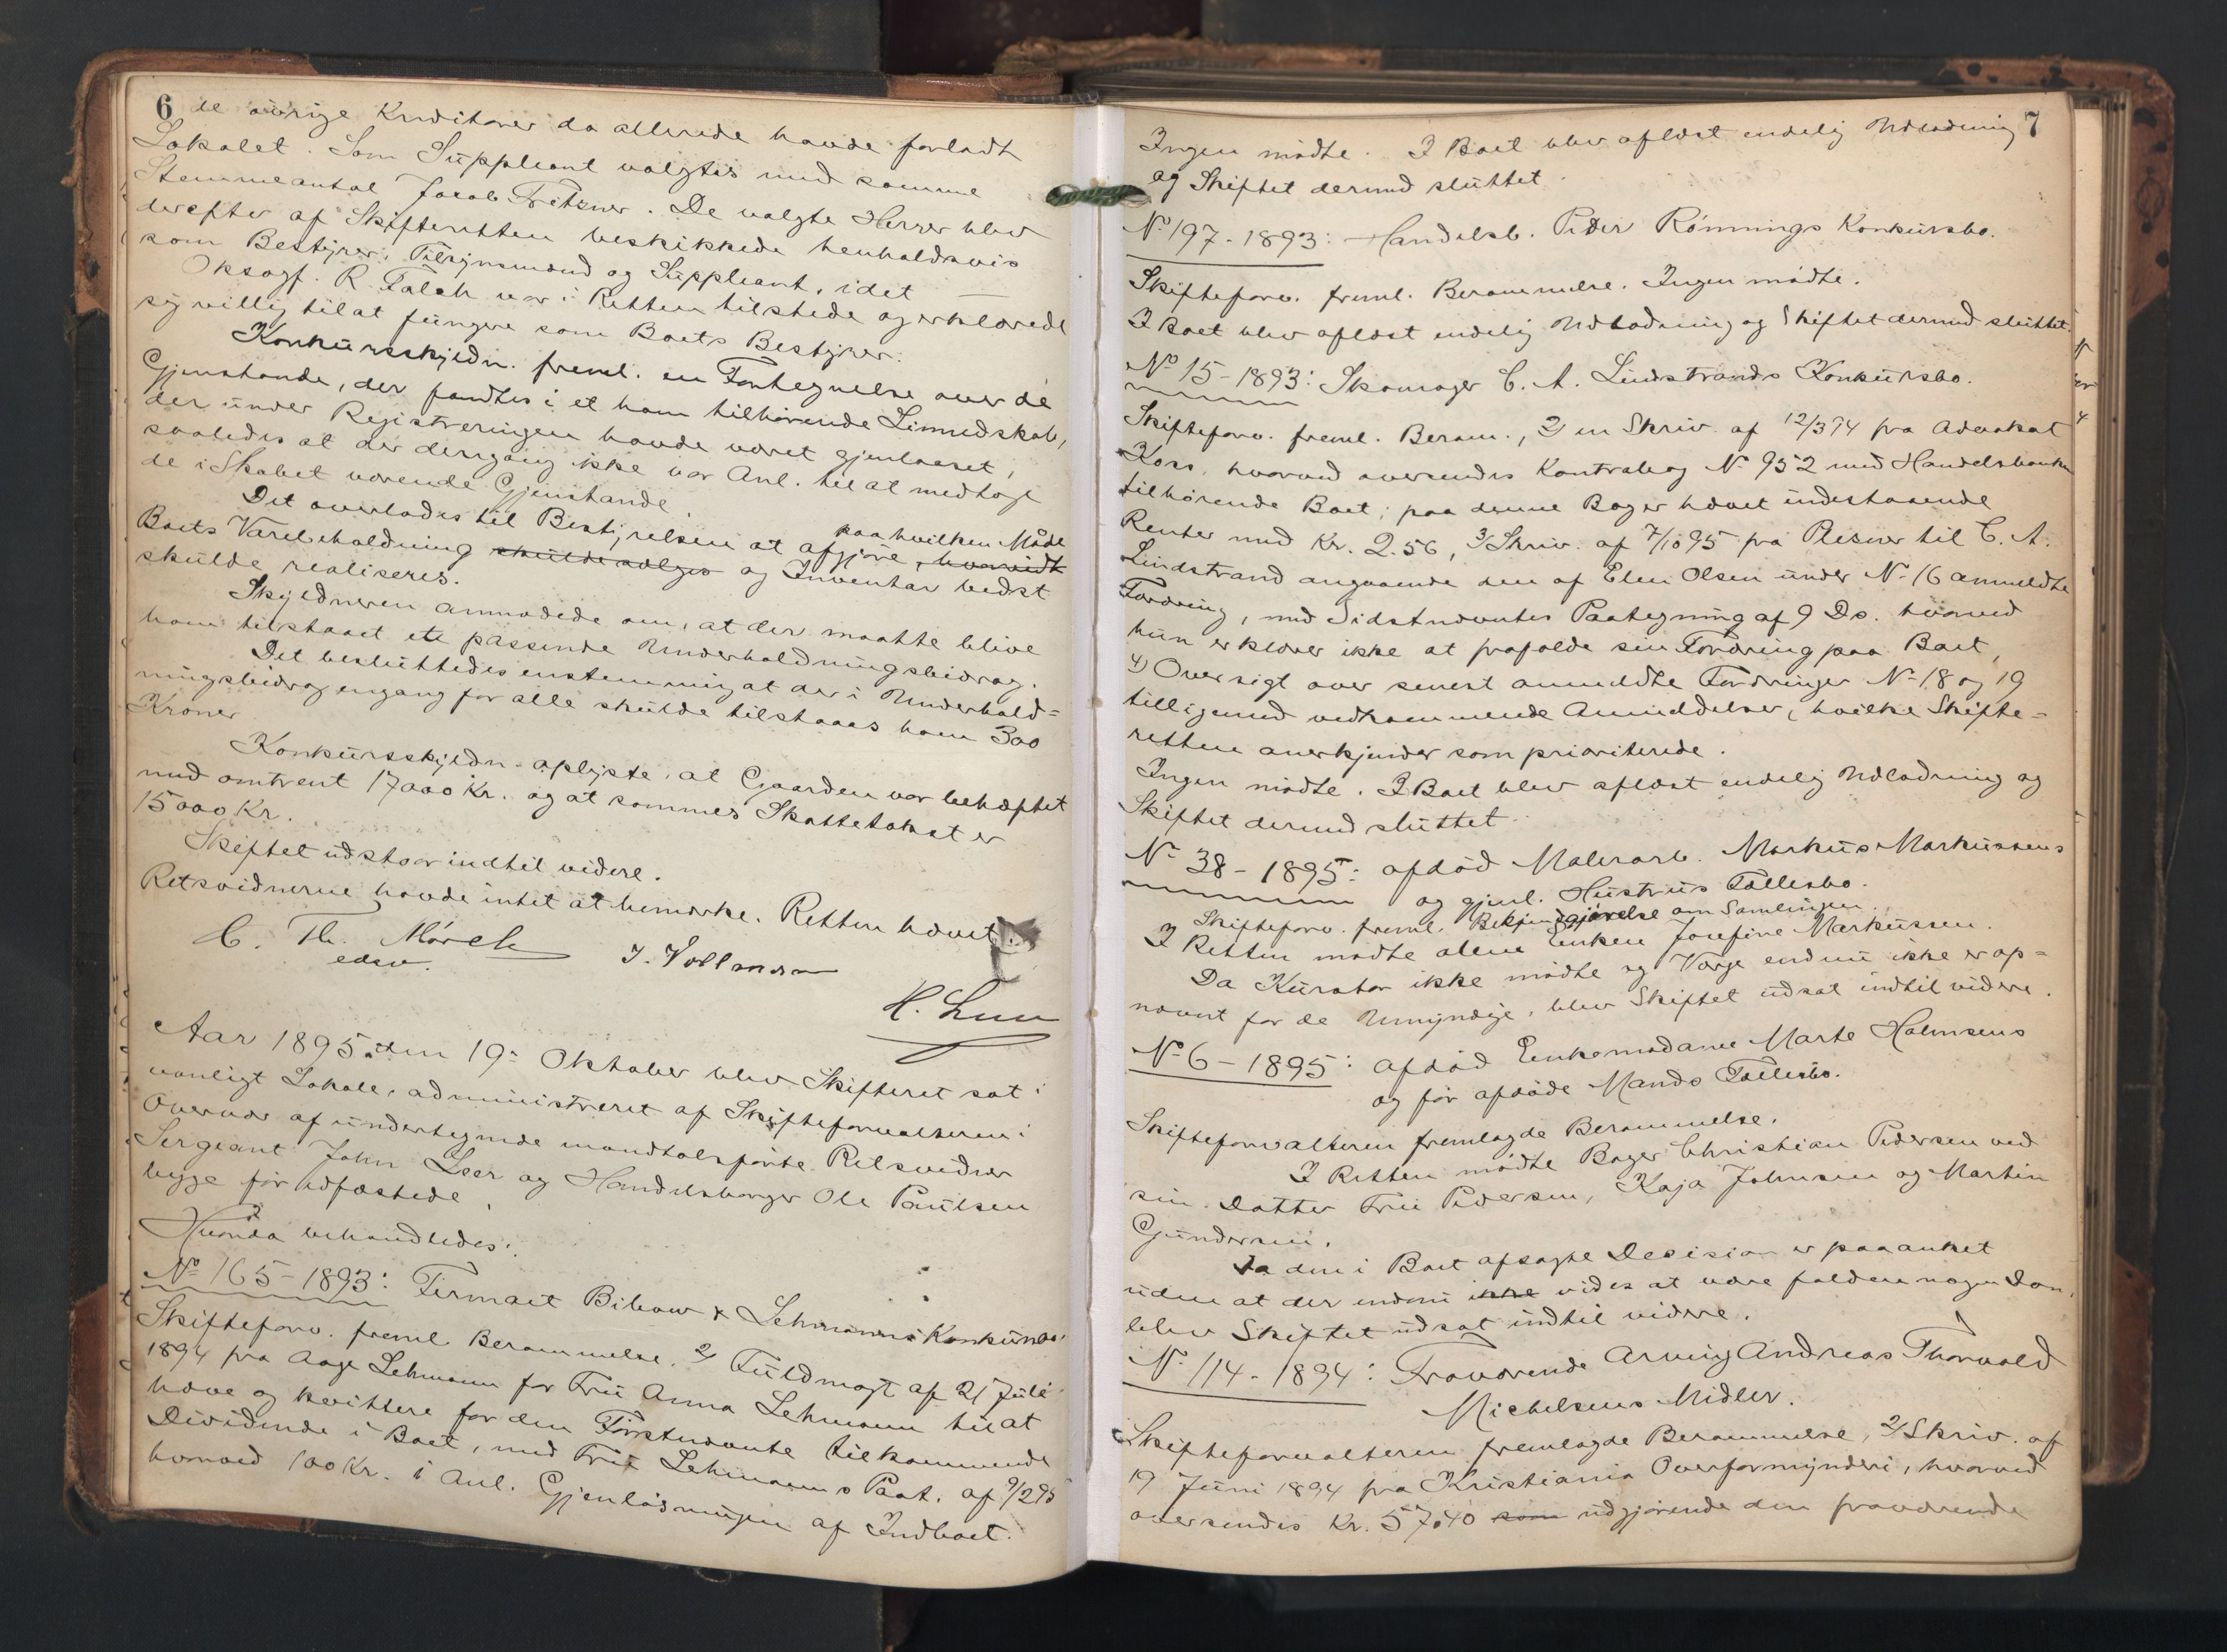 6
de øvrige Kreditorer da allerede havde forladt
Lokalet. Som Suppleant valgtes med samme
Stemmeantal Jacob Fretzner. De valgte Herrer blev
derefter af Skifteretten beskikkede henholdsvis
som Bestyrer, Tilsynsmænd og Suppleant, idet
Oksagf. R. Falch var i Retten tilstede og erklærede
sig villig til at fungere som Boets Bestyrer.
Konkursskjøldn. freml. en Fortegnelse over de
Gjenstande, der fandtes i et ham tilhørende Linnedskab,
der under Registreringen havde været gjenlaaset,
saaledes at der dengang ikke var Anl. til at medtage
de i Skabet værende Gjenstande.
Det overlodes til Bestyrelsen at afgjøre, hvorvidt paa hvilken Måde
Boets Varebeholdning skulde sælges og Inventar bedst
skulde realiseres.
Skyldneren anmodede om, at der maatte blive
ham tilstaaet et passende Underholdningsbidrag.
Det besluttedes enstemmig at der i Underhold=
ningsbidrag engang for alle skulde tilstaaes ham 300
Kroner
Konkursskjyldn. oplyste, at Gaarden var behæftet
med omtrent 17000 Kr. og at sammes Skattetakst er
15000 Kr.
Skiftet udstaar indtil videre.
Retsvidnerne havde intet at bemærke. Retten hævet.
C. Th. Mørch
edsv.
J. Vollan
H. Lun
Aar 1895 den 19. Oktober blev Skifteret sat i
vanligt Lokale, administreret af Skifteforvalteren i
Overvær af undertegnede mandtalsførte Retsvidner
Sergeant John Leer og Handelsborger Ole Paulsen
begge før edfæstede.
Hvorda behandledes:
No 165-1893: Firmaet Bülow & Lehmanns Konkursbo.
Skifteforv. freml. Berammelse. 2/ Fuldmagt af 21 Juli
1894 fra Aage Lehmann for Frü Anna Lehmann til at
hæve og kvittere for den Førstnævnte tilkommende
Dividende i Boet, med Frü Lehmanns Paat. af 9/2 95
hvorved 100 Kr. i Anl. Gjenløsningen af Indboet.
7
Ingen mødte. I Boet blev aflæst endelig Udlodning
og Skiftet dermed sluttet.
No 197-1893: Handelsb. Peder Rønnings Konkursbo.
Skifteforv. freml. Berammelse. Ingen mødte.
I Boet blev aflæst endelig Udlodning og Skiftet dermed sluttet.
No 15-1893: Skomager C. A. Lindstrands Konkursbo.
Skifteforv. freml. Beram., 2/ en Skriv. af 12/3 94 fra Advokat
Koss, hvorved oversendes Kontrabog No 952 med Handelsbanken
tilhørende Boet; paa denne Bog er hævet indestaaende
Renter med Kr. 2.56, 3/ Skriv. af 7/10 95 fra Reserv til C. A.
Lindstrand angaaende den af Elen Olsen under No 16 anmeldte
Fordring, med Sidstnævntes Paategning af 9 Ds. hvorved
hun erklærer ikke at frafalde sin Fordring paa Boet,
4) Oversigt over senest anmeldte Fordringer No 18 og 19
tilligemed vedkommende Anmeldelser, hvilke Skifte=
retten anerkjender som prioriterede.
Ingen mødte. I Boet blev aflæst endelig Udlodning og
Skiftet dermed sluttet.
No 38-1895: afdød Malerarb. Markus Markussens
og gjenl. Hustrus Fællesbo.
Skifteforv. freml. Bekjendtgjørelse om Samlingen.
I Retten mødte alene Enken Josefine Markussen.
Da Kurator ikke mødte og Værge endnu ikke er op=
nævnt for de Umyndige, blev Skiftet udsat indtil videre.
No 6-1895: afdød Enkemadame Marte Halmsens
og før afdøde Mands Fællesbo.
Skifteforvalteren fremlagde Berammelse.
I Retten mødte Bager Christian Pedersen ved
sin Datter Frü Pedersen, Kaja Johnsen og Martin
Gundersen.
Da den i Boet afsagte Decision er paaanket
uden at der endnu ikke vides at være falden nogen Dom,
blev Skiftet udsat indtil videre.
No 114-1894: Fraværende Arving Andreas Thorvald
Michelsens Midler.
Skifteforvalteren fremlagde Berammelse, 2/ Skriv. af
19 Juni 1894 fra Kristiania Overformynderi, hvorved
oversendes Kr. 57.40 som udgjørende den fraværende